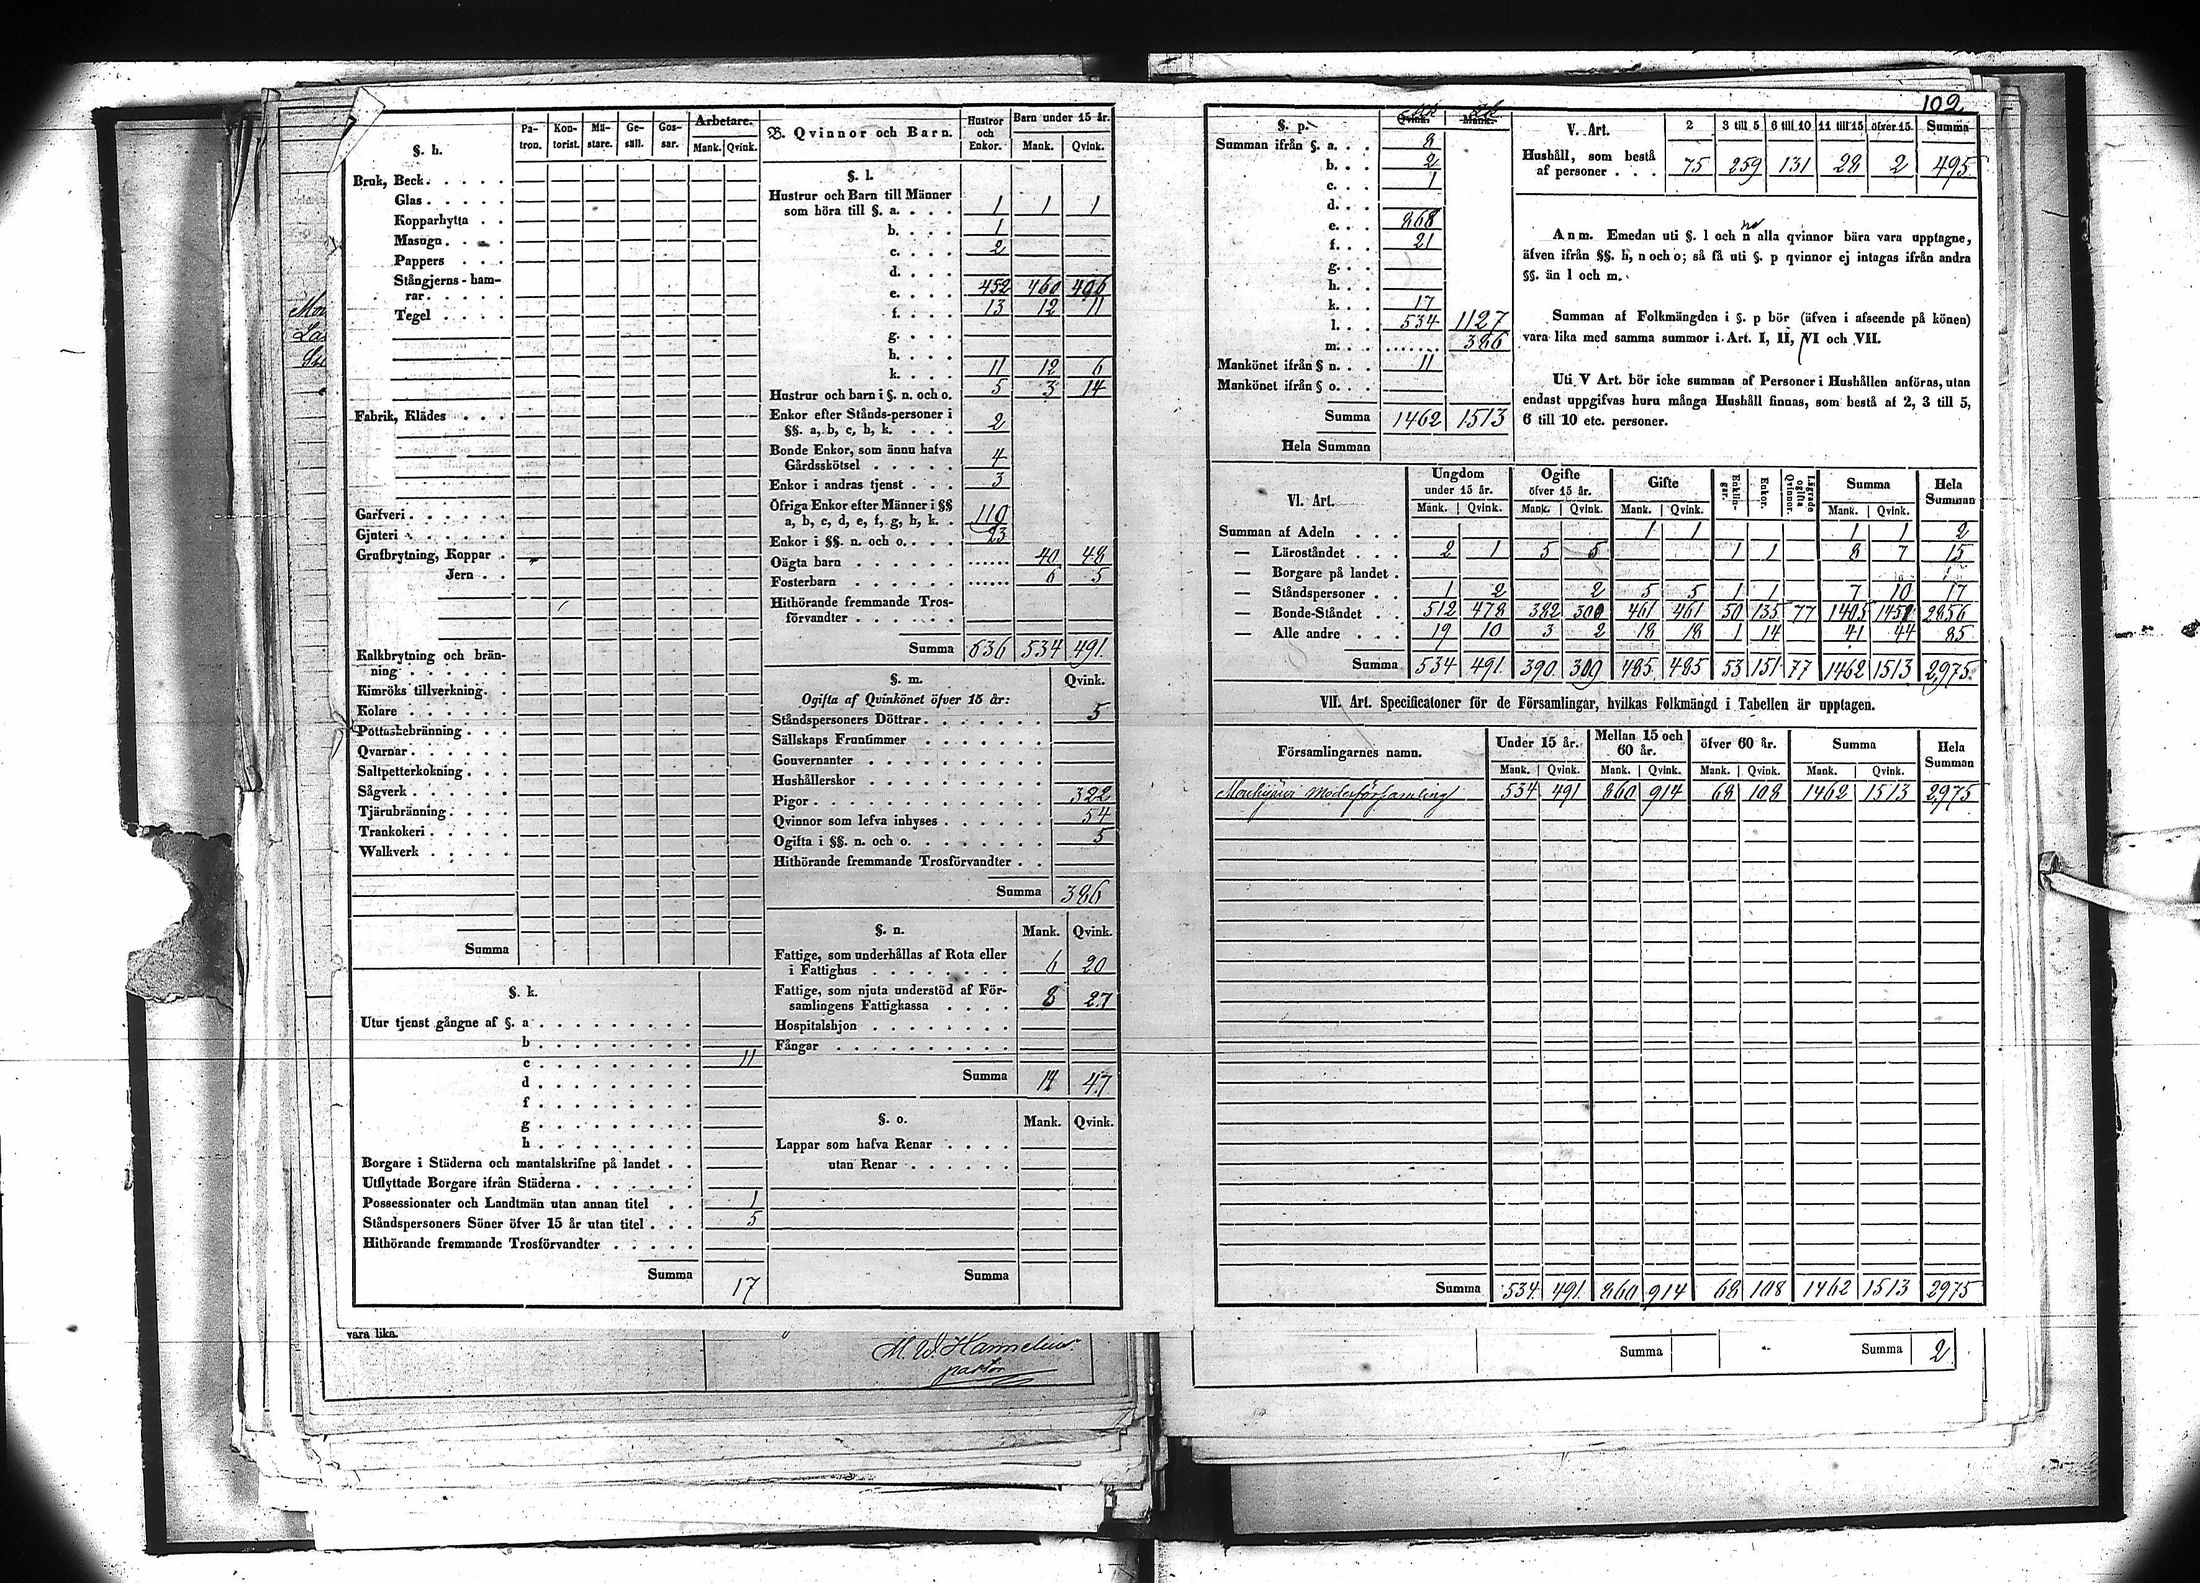 102
§. h.
Pa-tron. Kon-torist. Mä-stare. Ge-säll. Gos-sar. Arbetare. Mank. Qvink.
Bruk, Beck . . . . .
Glas . . . . .
Kopparhytta . .
Masugn . . . .
Pappers . . .
Stångjerns-ham-
rar . . . . .
Tegel . . . .
Fabrik, Klädes . . .
Garfveri . . . . . .
Gjuteri . . . . . .
Grufbrytning, Koppar .
Jern . .
Kalkbrytning och brän-
ning . . . . . .
Kimröks tillverkning. .
Kolare . . . . . .
Pottaskebränning . . .
Qvarnar . . . . . .
Saltpetterkokning . . .
Sågverk . . . . . .
Tjärubränning . . . .
Trankokeri . . . . .
Walkverk . . . . .
Summa
§. k.
Utur tjenst gångne af §. a . . . . . . . .
b . . . . . . . .
c . . . . . . . . 11
d . . . . . . . .
f . . . . . . . .
g . . . . . . . .
h . . . . . . . .
Borgare i Städerna och mantalskrifne på landet . .
Utflyttade Borgare ifrån Städerna . . . . . .
Possessionater och Landtmän utan annan titel . . 1
Ståndspersoners Söner öfver 15 år utan titel . . . 5
Hithörande fremmande Trosförvandter . . . . .
Summa 17
B. Qvinnor och Barn. Hustror och Enkor. Barn under 15 år. Mank. Qvink.
§. l.
Hustrur och Barn till Männer
som höra till §. a. . . . 1 1 1
b. . . . 1
c. . . . 2
d. . . .
e. . . . 452 460 406
f. . . . 13 12 11
g. . . .
h. . . .
k. . . . 11 12 6
Hustrur och barn i §. n. och o. 5 3 14
Enkor efter Stånds-personer i
§§. a, b, c, h, k. . . . 2
Bonde Enkor, som ännu hafva
Gårdsskötsel . . . . . 4
Enkor i andras tjenst . . . 3
Öfriga Enkor efter Männer i §§
a, b, c, d, e, f, g, h, k. . 110
Enkor i §§. n. och o. . . . 23
Oägta barn . . . . . . ...... 40 48
Fosterbarn . . . . . . ...... 6 5
Hithörande fremmande Tros-
förvandter . . . . . .
Summa 636 534 491
§. m. Qvink.
Ogifta af Qvinkönet öfver 15 år:
Ståndspersoners Döttrar . . . . . . . 5
Sällskaps Fruntimmer . . . . . . .
Gouvernanter . . . . . . . . .
Hushållerskor . . . . . . . . .
Pigor . . . . . . . . . . . 322
Qvinnor som lefva inhyses . . . . . . 54
Ogifta i §§. n. och o. . . . . . . . 5
Hithörande fremmande Trosförvandter . .
Summa 386
§. n. Mank. Qvink.
Fattige, som underhållas af Rota eller
i Fattighus . . . . . . . . 6 20
Fattige, som njuta understöd af För-
samlingens Fattigkassa . . . . 8 27
Hospitalshjon . . . . . . . .
Fångar . . . . . . . . . .
Summa 14 47
§. o. Mank. Qvink.
Lappar som hafva Renar . . . .
utan Renar . . . . . .
Summa
vara lika.
M. W. Hannelius
pastor
§. p. Qvink. Mank.
Summan ifrån §. a. . . 8
b. . . 2
c. . . 1
d. . .
e. . . 868
f. . . 21
g. . .
h. . .
k. . . 17
l. . . 534 1127
m. . . ....... 386
Mankönet ifrån § n. . . 11
Mankönet ifrån § o. . .
Summa 1462 1513
Hela Summan
V. Art. 2 3 till 5 6 till 10 11 till 15 öfver 15. Summa
Hushåll, som bestå
af personer . . . 75 259 131 28 2 495
Anm. Emedan uti §. l och n alla qvinnor bära vara upptagne,
äfven ifrån §§. h, n och o; så få uti §. p qvinnor ej intagas ifrån andra
§§. än l och m.
Summan af Folkmängden i §. p bör (äfven i afseende på könen)
vara lika med samma summor i Art. I, II, VI och VII.
Uti V Art. bör icke summan af Personer i Hushållen anföras, utan
endast uppgifvas huru många Hushåll finnas, som bestå af 2, 3 till 5,
6 till 10 etc. personer.
VI. Art. Ungdom under 15 år. Ogifte öfver 15 år. Gifte Enklin-gar. Enkor. Lägrade ogifta Qvinnor. Summa Hela Summan
Mank. Qvink. Mank. Qvink. Mank. Qvink. Mank. Qvink.
Summan af Adeln . . . 1 1 1 1 2
— Läroståndet . . . 2 1 5 5 1 1 8 7 15
— Borgare på landet .
— Ståndspersoner . . 1 2 2 5 5 1 1 7 10 17
— Bonde-Ståndet . . 512 478 382 300 461 461 50 135 77 1405 1451 2856
— Alle andre . . . 19 10 3 2 18 18 1 14 41 44 85
Summa 534 491 390 309 485 485 53 151 77 1462 1513 2975
VII. Art. Specificatoner för de Församlingar, hvilkas Folkmängd i Tabellen är upptagen.
Församlingarnes namn. Under 15 år. Mellan 15 och 60 år. öfver 60 år. Summa Hela Summan
Mank. Qvink. Mank. Qvink. Mank. Qvink. Mank. Qvink.
Moderförsamling 534 491 860 914 68 108 1462 1513 2975
Summa 534 491 860 914 68 108 1462 1513 2975
Summa Summa 2